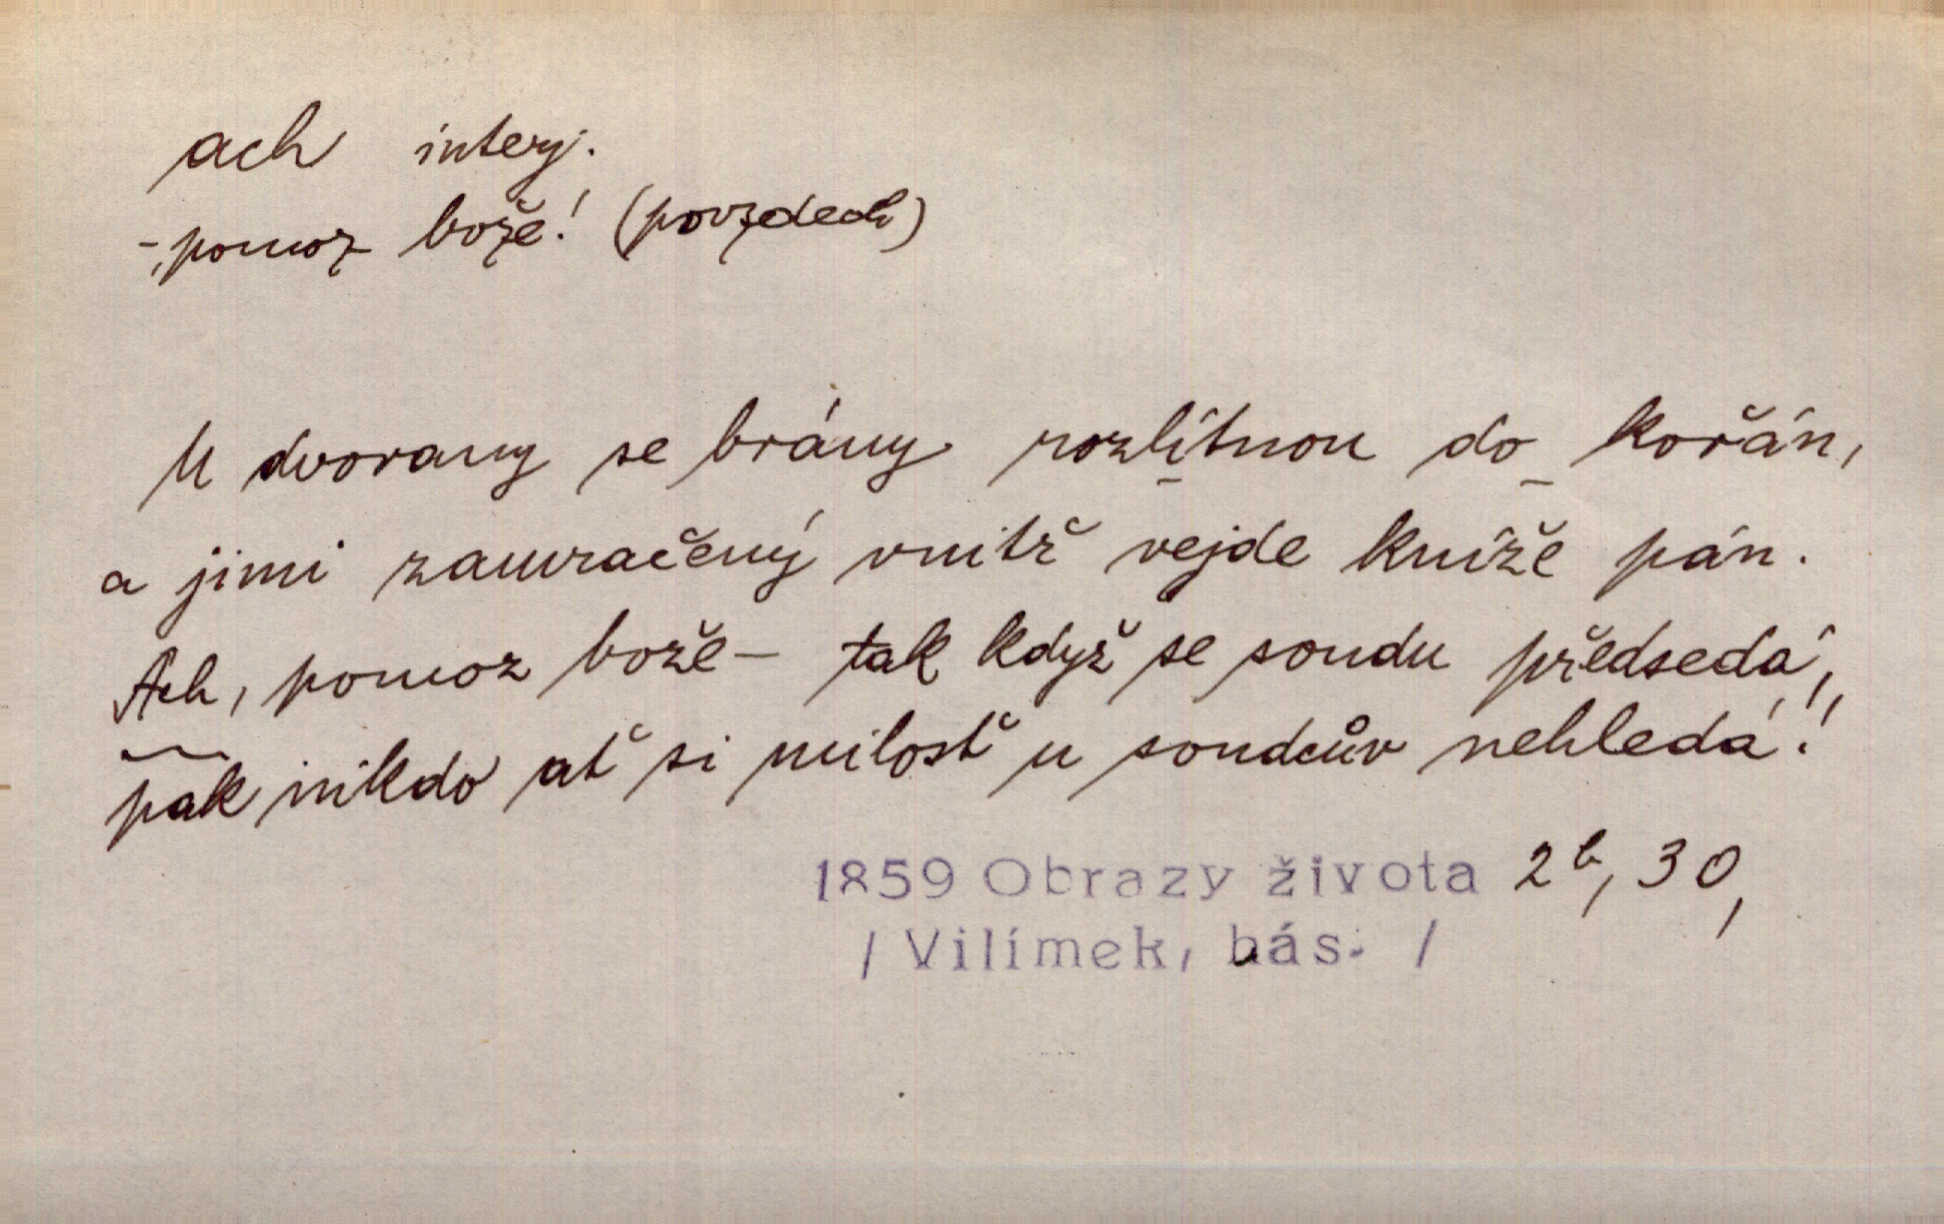 ach interj.
-, pomoz bože! (povzdech)
U dvorany se brány rozlítnou do kořán,
a jimi zamračený vnitř vejde kníže pán.
Ach, pomoz bože – tak když se soudu předsedá,
pak nikdo ať si milosť u soudcův nehledá!"
1859 Obrazy života 2b, 30,
/ Vilímek, bás. /